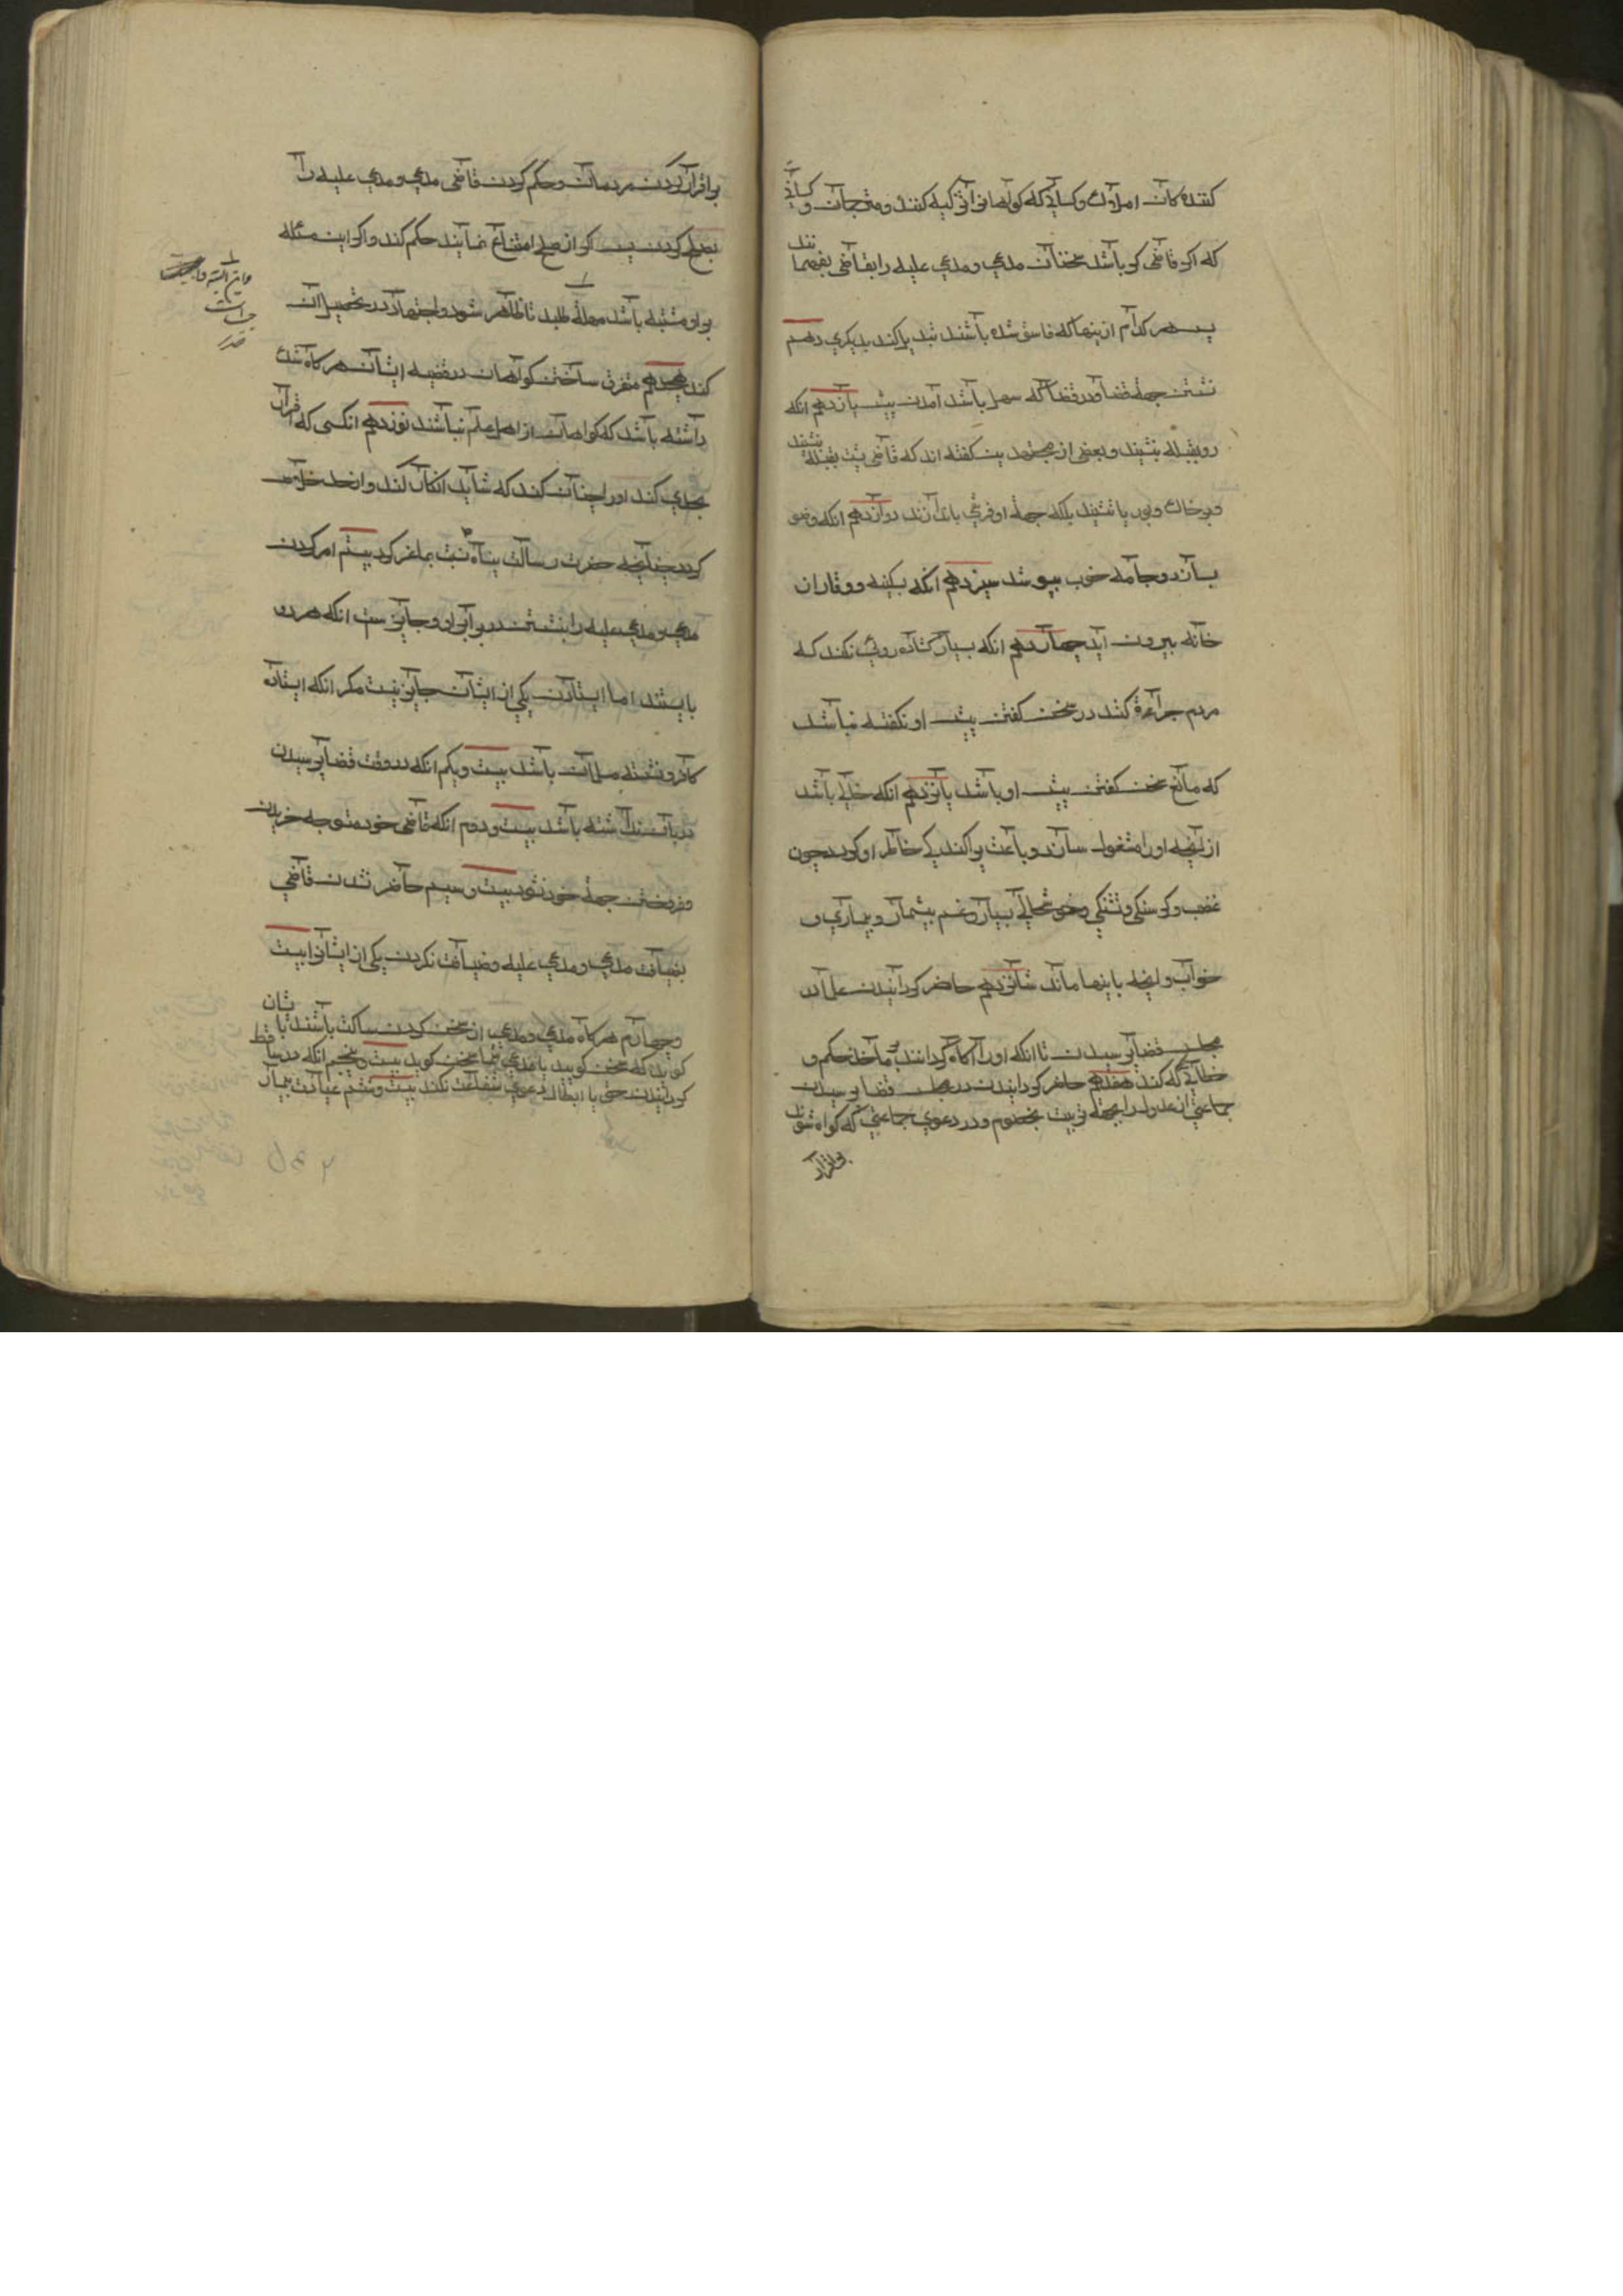 کنندهکان امراوی و کسانی که کواهانرا تزکیه کنند و مترجمان و کسانی
که اکر قاضی کر باشد سخنان مدعی و مدعی علیه را بقاضی بفهمانند
پس هر کدام از ینها که فاسق شده باشند تبدیل کند بدیکری دهم
نشستن جهة قضا و در فضا که سهل باشد آمدن پیش یازدهم انکه
رو بقبله نشیند و بعضی از مجتهدین کفته اند که قاضی پشت بقبله نشیند
و بر خاک و بوریا نشیند بلکه جهة او فرشی باندازند دوازدهم انکه وضو
بسازد و جامه خوب بپوشد سیزدهم انکه بسکینه و وقار از
خانه بیرون آید چهاردهم انکه بسیار کشاده رویی نکند که
مردم جراءة کنند در سخن کفتن پیش او نکفته نباشد
که مانع سخن کفتن پیش او باشد پانزدهم انکه خالی باشد
از آنچه او را مشغول سازد و باعث پراکندیکی خاطر او کردد چون
غضب و کرسنکی و تشنکی و خوشحالی بسیار و غم بیشمار و بیماری و
خواب و آنچه باینها ماند شانزدهم حاضر کردانیدن علما در
مجلس قضا پرسیدن تا انکه او را آکاه کردانند بر مآخذ حکم و
خطایی که کند هفدهم حاضر کردانیدن در مجلس قضا پرسیدن
جماعتی از عدول را بجهة تربیت بخصوم و در دعوی جماعتی که کواه شوند
بر اقرار
بر اقرار کردن مردمان و حکم کردن قاضی مدعی و مدعی علیه را
بصلح کردن پس اکر از صلح امتناع نمایند حکم کند و اکر این مسئله
بر او مشتبه باشد مهلة طلبد تا ظاهر شود و اجتهاد در تحصیل آن
کند هجدهم متفرق ساختن کواهان در قضیه ایشان هر کاه شک
داشته باشد که کواهان از اهل علم نباشند نوزدهم انکسی که اقرار
بحدی کند او را چنان کند که شاید انکار کند و از حد خلاص
کردد چنانچه حضرت رسالت پناه نسبت بماعز کرد بیستم امر کردن
مدعی و مدعی علیه را بنشستن در برابر او و جایز ست انکه هر دو
بایستند اما ایستادن یکی از ایشان جایز نیست مکر انکه ایستاده
کافر و نشسته مسلمان باشد بیست و یکم انکه در وقت قضا پرسیدن
دربان نداشته باشد بیست و دوم انکه قاضی خود متوجه خریدن
و فروختن جهة خود نشود بیست و سیم حاضر شدن قاضی
بضیافت مدعی و مدعی علیه و ضیافت نکردن یکی از ایشانرا بیست
و چهارم هر کاه مدعی و مدعی از سخن کردن ساکت باشند با شان
کوید که سخن کویید یا مدعی شما سخن کوید بیست و پنجم انکه در ساقط
کردانیدن حق یا ابطال دعوی شفاعت نکند بیست و ششم عیادت بیمار